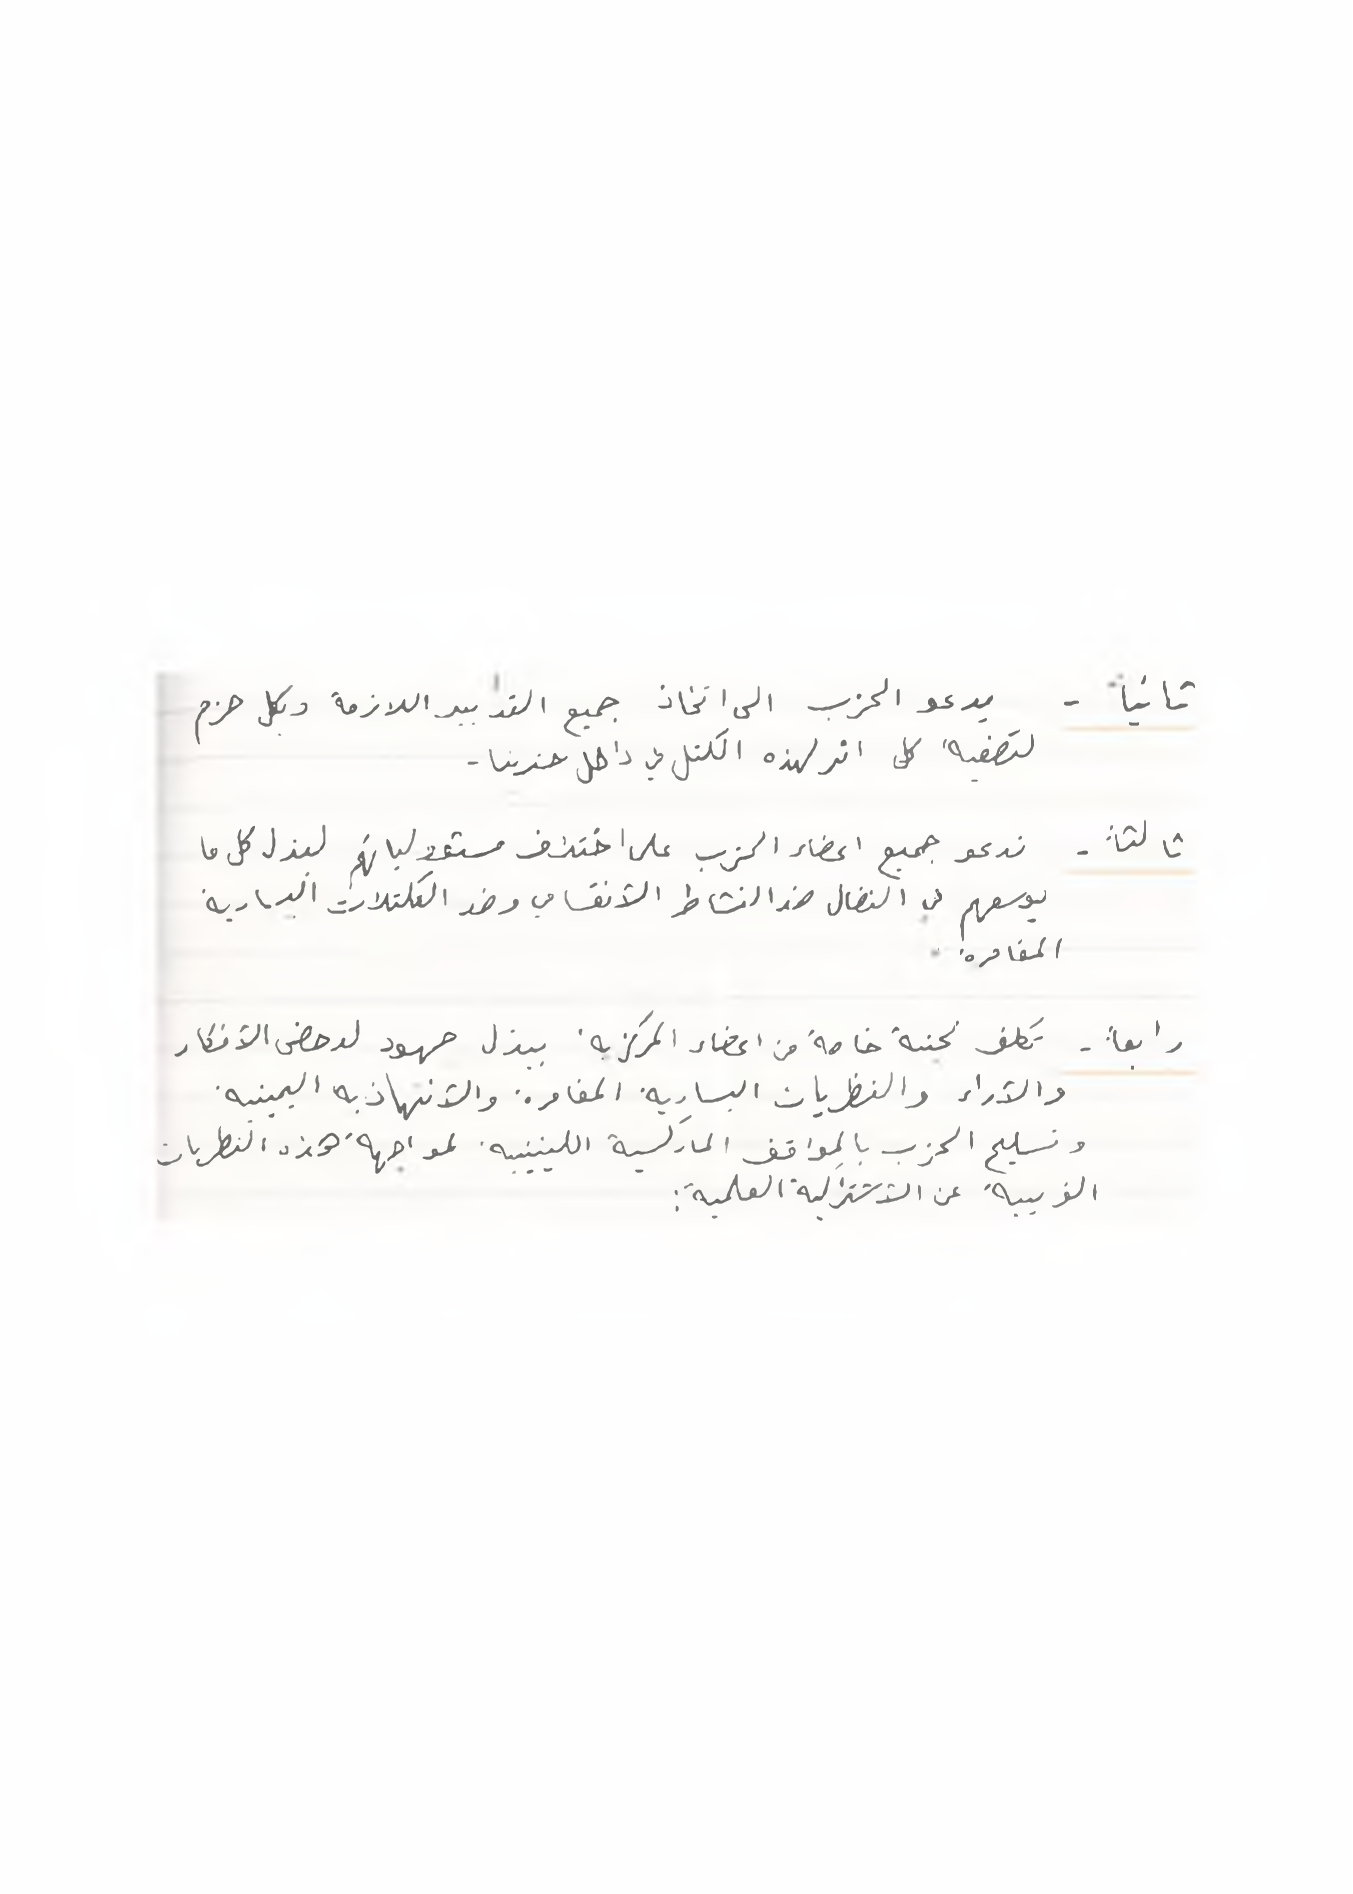 ثانياً - يدعو الحزب الى اتخاذ جميع التدابير اللازمة وبكل حزم
لتصفية كل اثر لهذه الكتل في داخل حزبنا -
ثالثاً - ندعو جميع اعضاء الحزب على اختلاف مستؤولياتهم لبذل كل ما
بوسعهم في النضال ضد النشاط الأنقسامي وضد التكتلات اليسارية
المغامرة .
رابعاً - تكلف لجنة خاصة من اعضاء المركزية ببذل جهود لدحض الأفكار
والآراء والنظريات اليسارية المغامرة والأنتهازية اليمينية
وتسليح الحزب بالمواقف الماركسية اللينينية لمواجهة هذه النظريات
الغريبة عن الأشتراكية العلمية :